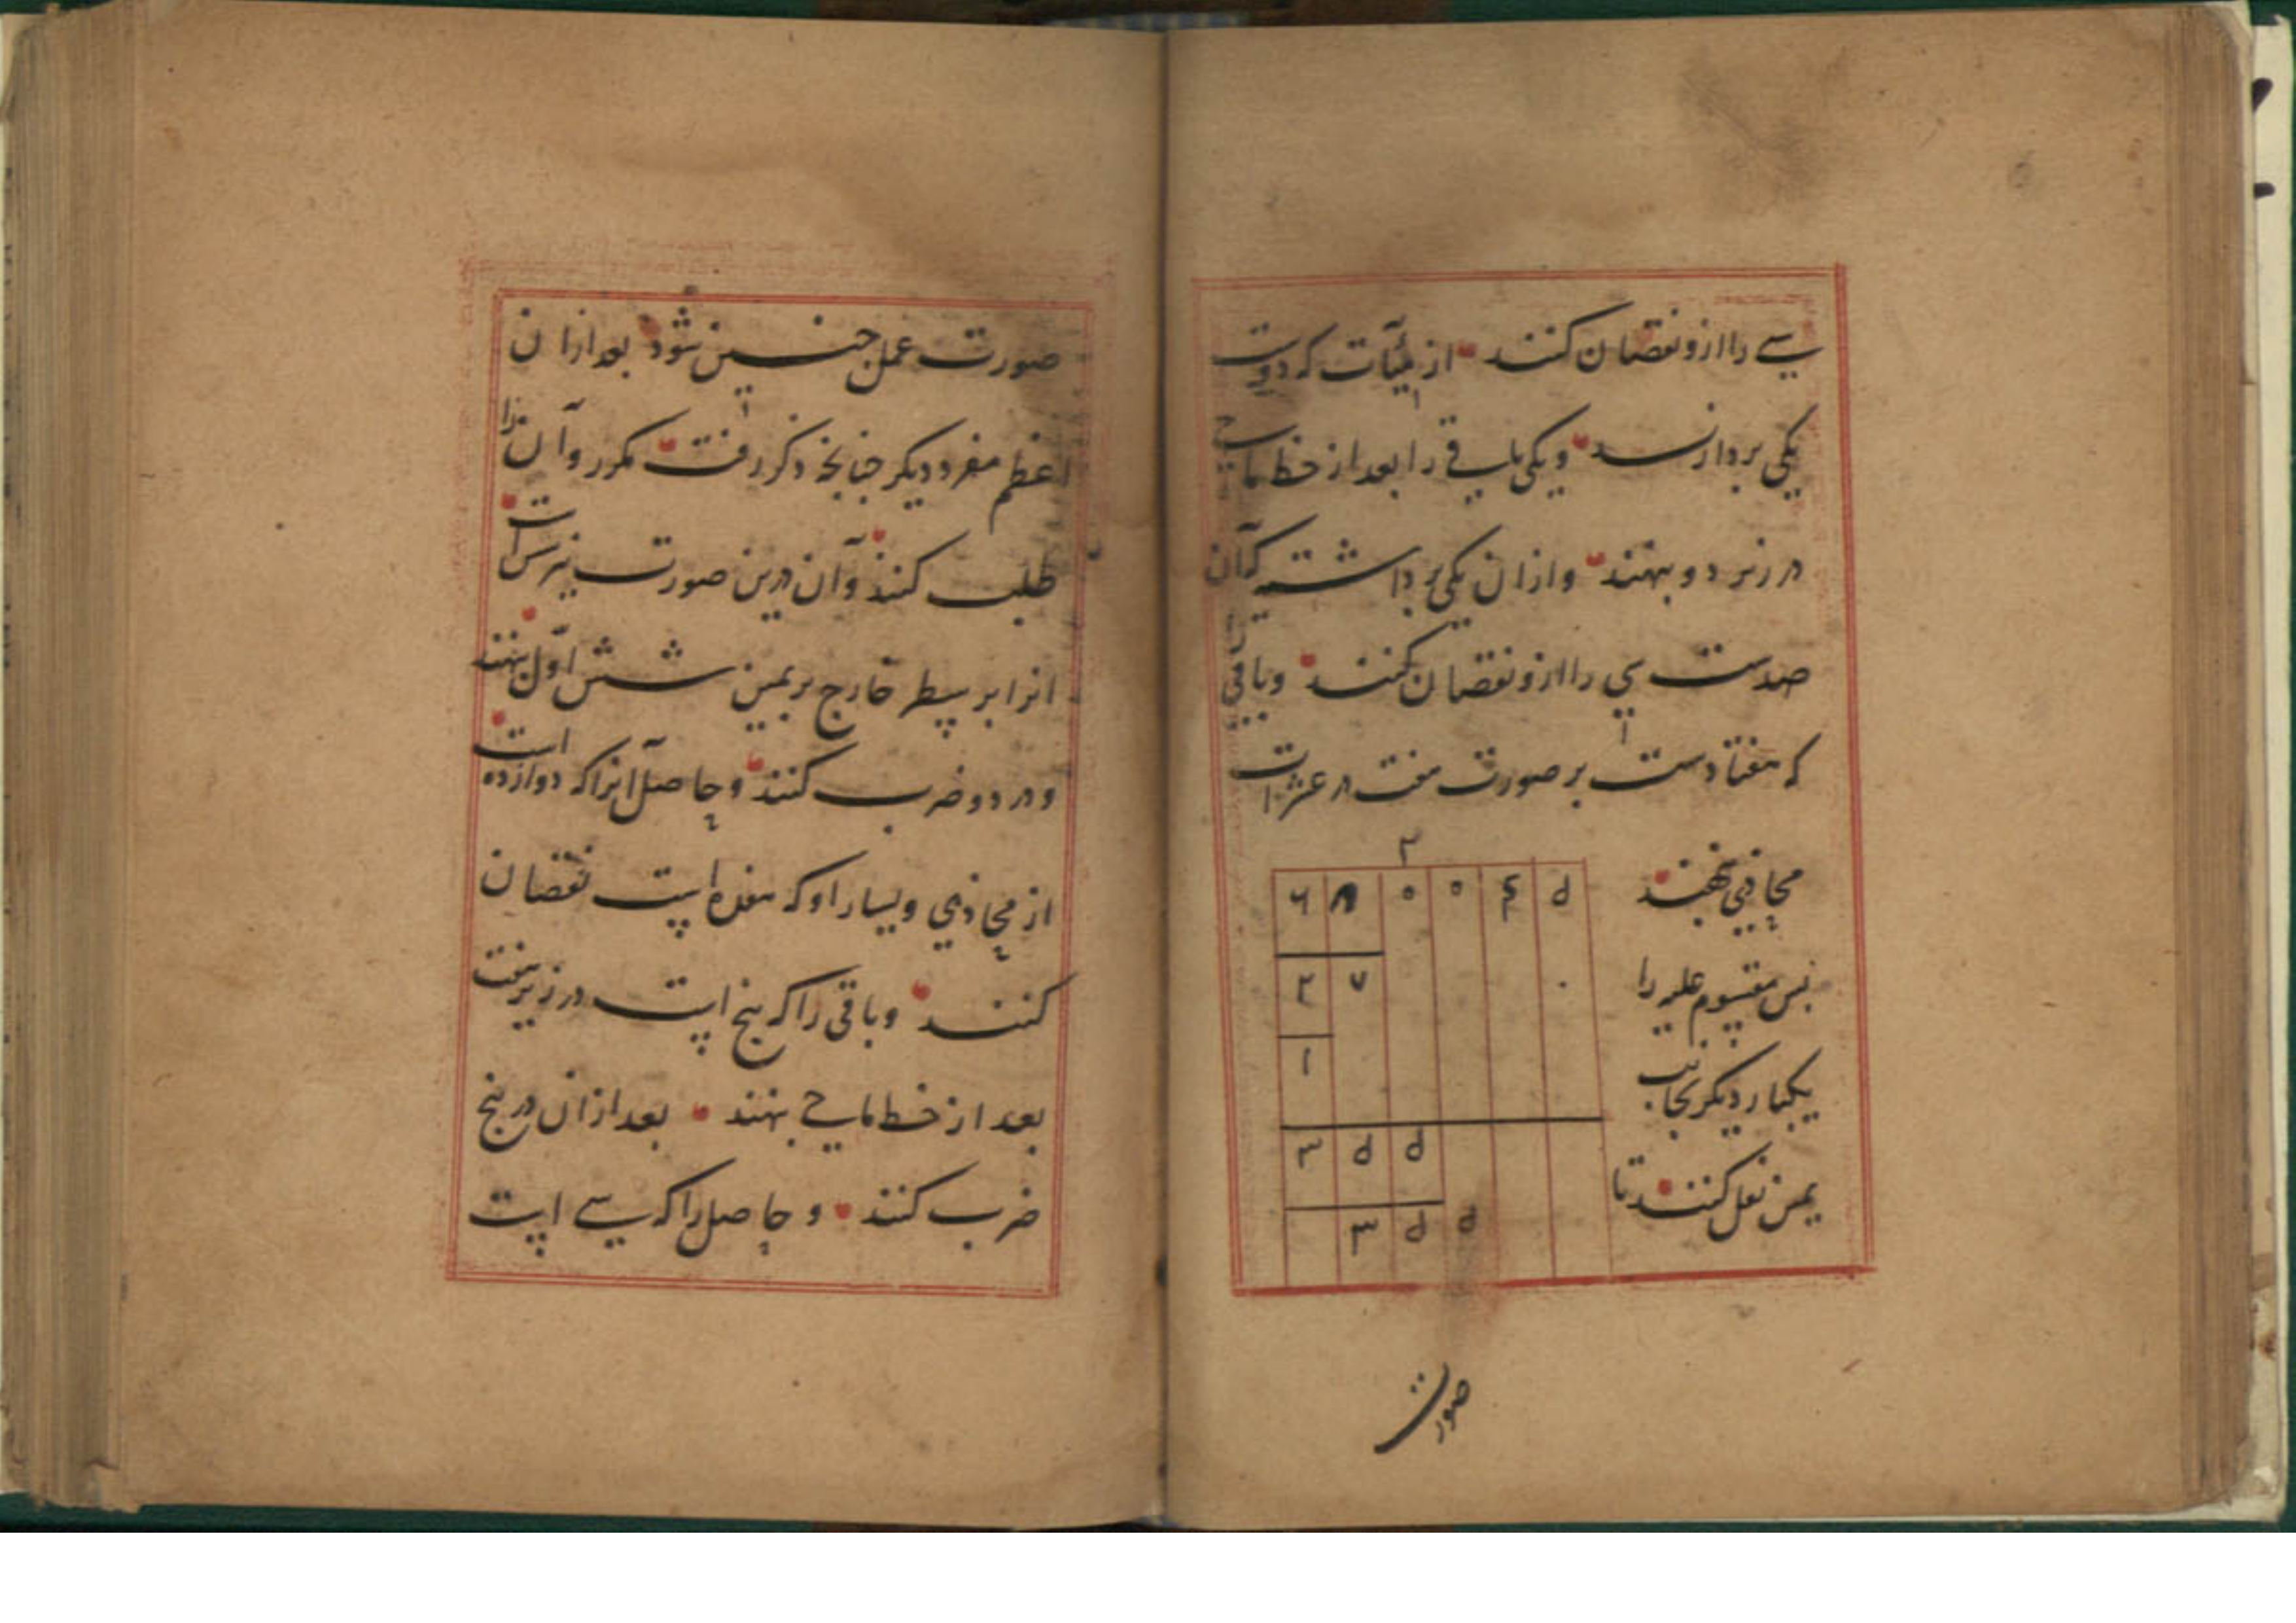 سے را ازو نقصان کنند از مئآت که دوست
یکی بردارند و یکی باقے را بعد از خط ماحے
در زیر دو بنهند و ازان یکی برداشته که آن
صدست سی را ازو نقصان کنند و باقی را
که هفتادست بر صورت هفت در عشرات
محاذی نهند
پس مقسوم علیه را
یکبار دیگر بجانب
یمین نقل کنند تا
۲
۶ ۸ ۰ ۰ ۴ ۵
۲ ۷ ۰
۱
۳ ۵ ۵
۳ ۵ ۵
صورت
صورت عمل چنین شود بعد ازان
اعظم مفرد دیگر چنانچه ذکر رفت مکرر و آن را
طلب کنند و آن درین صورت نیز شش است
انرا بر سطر خارج بر یمین شش اول بنهند
و در دو ضرب کنند و حاصل انرا که دوازده است
از محاذی و یسار او که هفده است نقصان
کنند و باقی را که پنج است در زیر هفت
بعد از خط ماحے بنهند بعد ازان در پنج
ضرب کنند و حاصل را که سے است